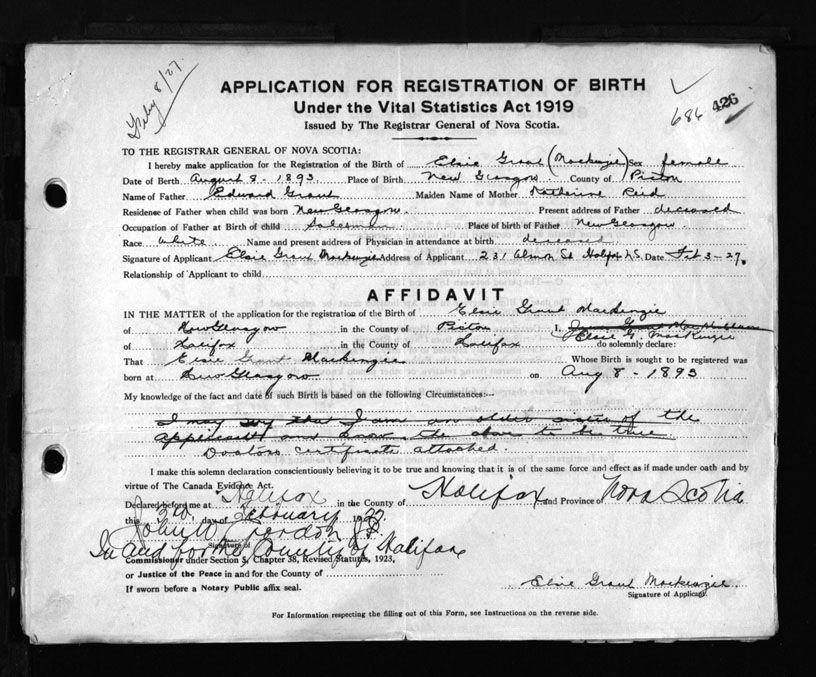 Feby 8/27.
APPLICATION FOR REGISTRATION OF BIRTH
Under the Vital Statistics Act 1919
Issued by The Registrar General of Nova Scotia.
686 426
TO THE REGISTRAR GENERAL OF NOVA SCOTIA:
I hereby make application for the Registration of the Birth of Elsie Grant (Mackenzie) Sex female
Date of Birth August 8 - 1893 Place of Birth New Glasgow County of Pictou
Name of Father Edward Grant Maiden Name of Mother Katherine Reid
Residense of Father when child was born New Glasgow Present address of Father deceased
Occupation of Father at Birth of child Salesman Place of birth of Father New Glasgow
Race White Name and present address of Physician in attendance at birth deceased
Signature of Applicant Elsie Grant Mackenzie Address of Applicant 231 Almon St Halifax N.S. Date Feb 3-27.
Relationship of Applicant to child
AFFIDAVIT
IN THE MATTER of the application for the registration of the Birth of Elsie Grant MacKenzie
of New Glasgow in the County of Pictou I, Elsie G. MacKenzie
of Halifax in the County of Halifax do solemnly declare:
That Elsie Grant Mackenzie Whose Birth is sought to be registered was
born at New Glasgow on Aug 8 - 1893
My knowledge of the fact and date of such Birth is based on the following Circumstances:—
I may say that I am an older sister of the
applicant and know the above to be true
Doctors certificate attached.
I make this solemn declaration conscientiously believing it to be true and knowing that it is of the same force and effect as if made under oath and by
virtue of The Canada Evidence Act.
Declared before me at Halifax in the County of Halifax and Province of Nova Scotia
this day of February 1927.
John W J P
Signature of
In and for the County of Halifax
Commissioner under Section 5, Chapter 38, Revised Statutes, 1923,
or Justice of the Peace in and for the County of
If sworn before a Notary Public affix seal.
Elsie Grant Mackenzie
Signature of Applicant.
For Information respecting the filling out of this Form, see Instructions on the reverse side.